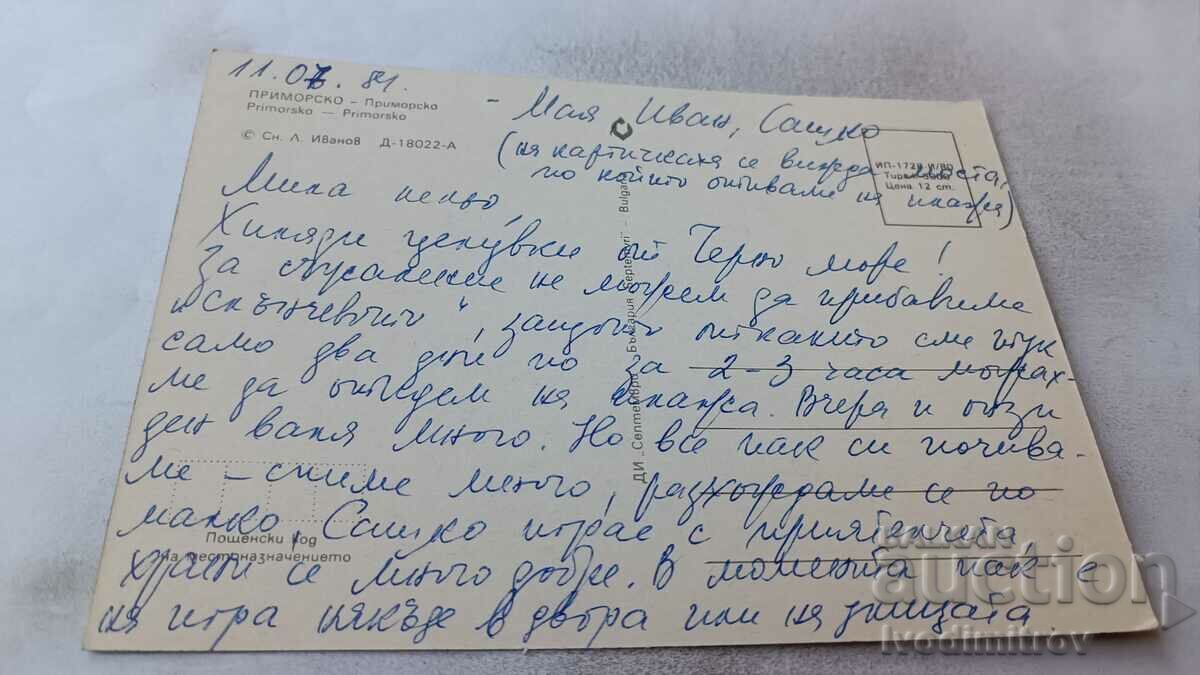 11.07.81.
ПРИМОРСКО – Приморско
Primorsko — Primorsko
© Сн. Л. Иванов Д-18022-А
- Мая, Иван, Сашко
(на картичката се вижда моста,
по който отиваме на плажа)
ИП-1728-И/80
Тираж 5000
Цена 12 ст.
Мила лельо,
Хиляди целувки от Черно море!
За съжаление не можем да прибавиме
"слънчевото", защото откакто сме тук
само два дни по за 2-3 часа можах-
ме да отидем на плажа. Вчера и този
ден валя много. Но все пак си почива-
ме – спиме много, разхождаме се по
малко, Сашко играе с приятелчета,
храни се много добре. В момента пак е
на игра някъде в двора или на улицата
Пощенски код
на местоназначението
ДИ „Септември" България Septemvri - Bulgaria
auction
Ivodimitrov